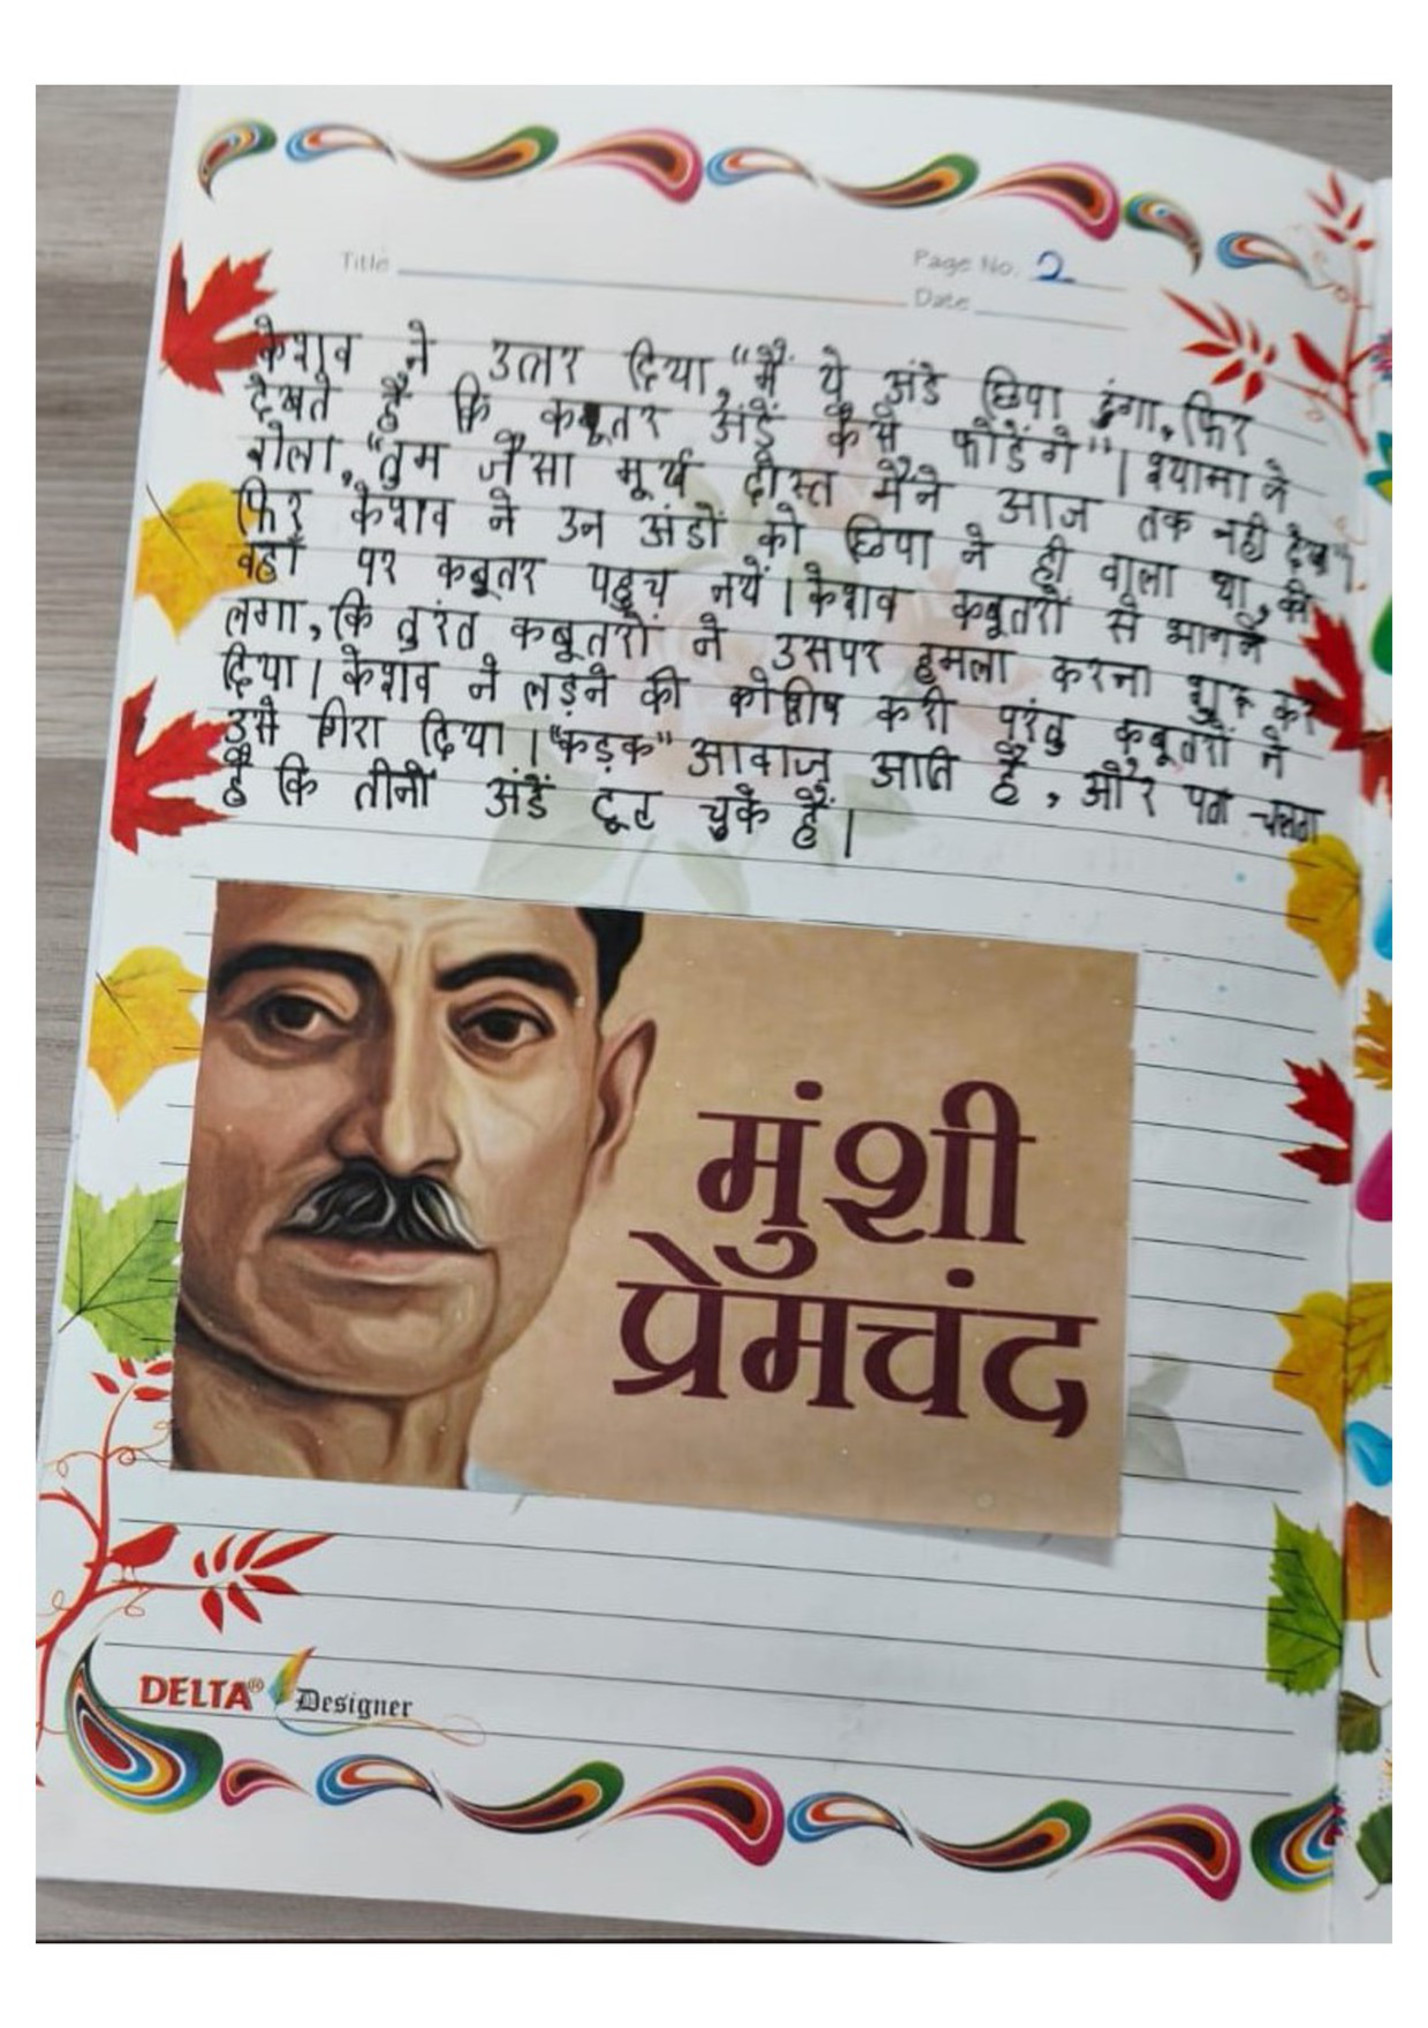 Title
Page No. 2
Date
केशव ने उत्तर दिया, "मैं ये अंडे छिपा दुंगा, फिर
देखते हैं कि कबूतर अंडें कैसे फोडेंगे"। श्यामा ने
बोला, "तुम जैसा मूर्ख दोस्त मैंने आज तक नही देखा"।
फिर केशव ने उन अंडों को छिपा ने ही वाला था, की
वहाँ पर कबूतर पहुच गयें। केशव कबूतरों से भागने
लगा, कि तुरंत कबूतरों ने उसपर हमला करना शुरू कर
दिया। केशव ने लड़ने की कोशिष करी परंतु कबूतरों ने
उसे गिरा दिया। "कड़क" आवाज़ आति है, और पता चलता
है कि तीनों अंडें टूट चुके हैं।
मुंशी
प्रेमचंद
DELTA® Designer